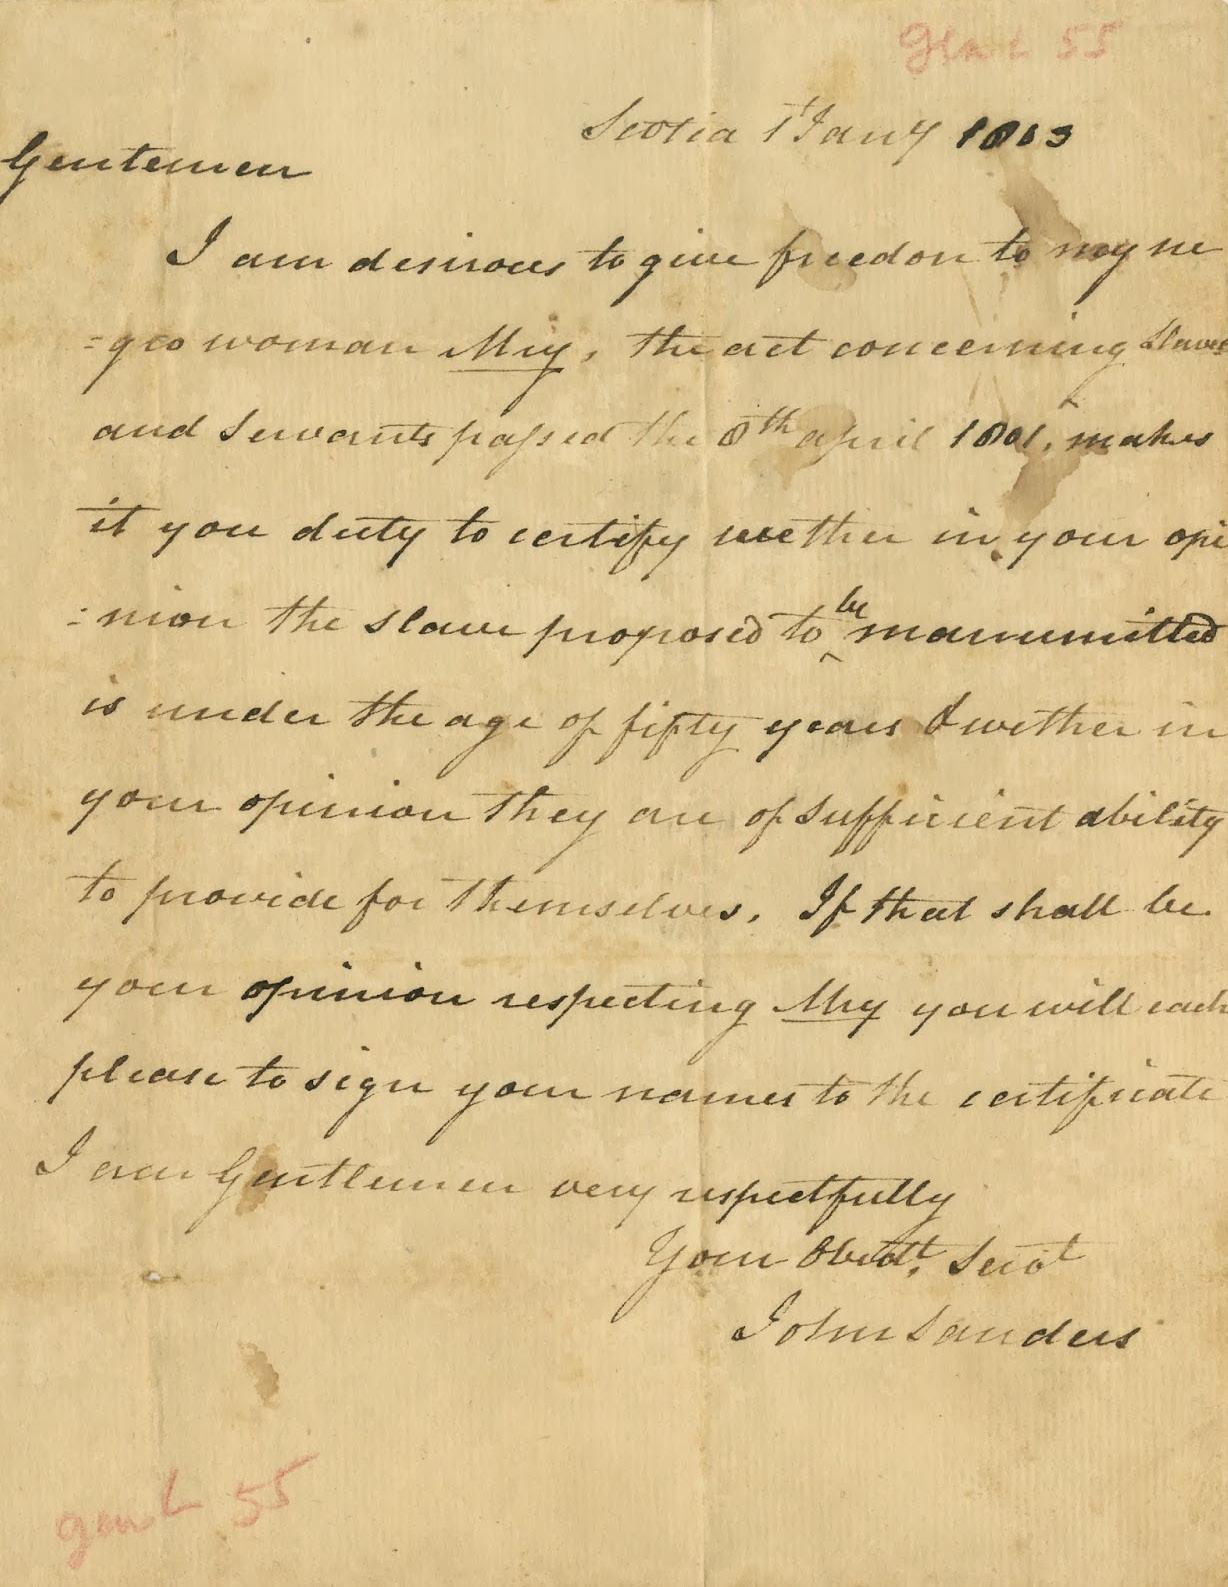 gen L 55
Scotia 1t Jany 1803
Gentemen
I am desirous to give freedon to my ne
=gro woman Miy, the act concerning Slaves
and Servants passed the 8th april 1801. makes
it you duty to certify wether in your opi
:nion the slave proposed to be manumitted
is under the age of fifty years & wether in
your opinion they are of sufficient ability
to provide for themselves. If that shall be
your opinion respecting Miy you will each
please to sign your names to the certificate
I am Gentlemen very respectfully
Your Obedt. Servt
John Sanders
gen L 55